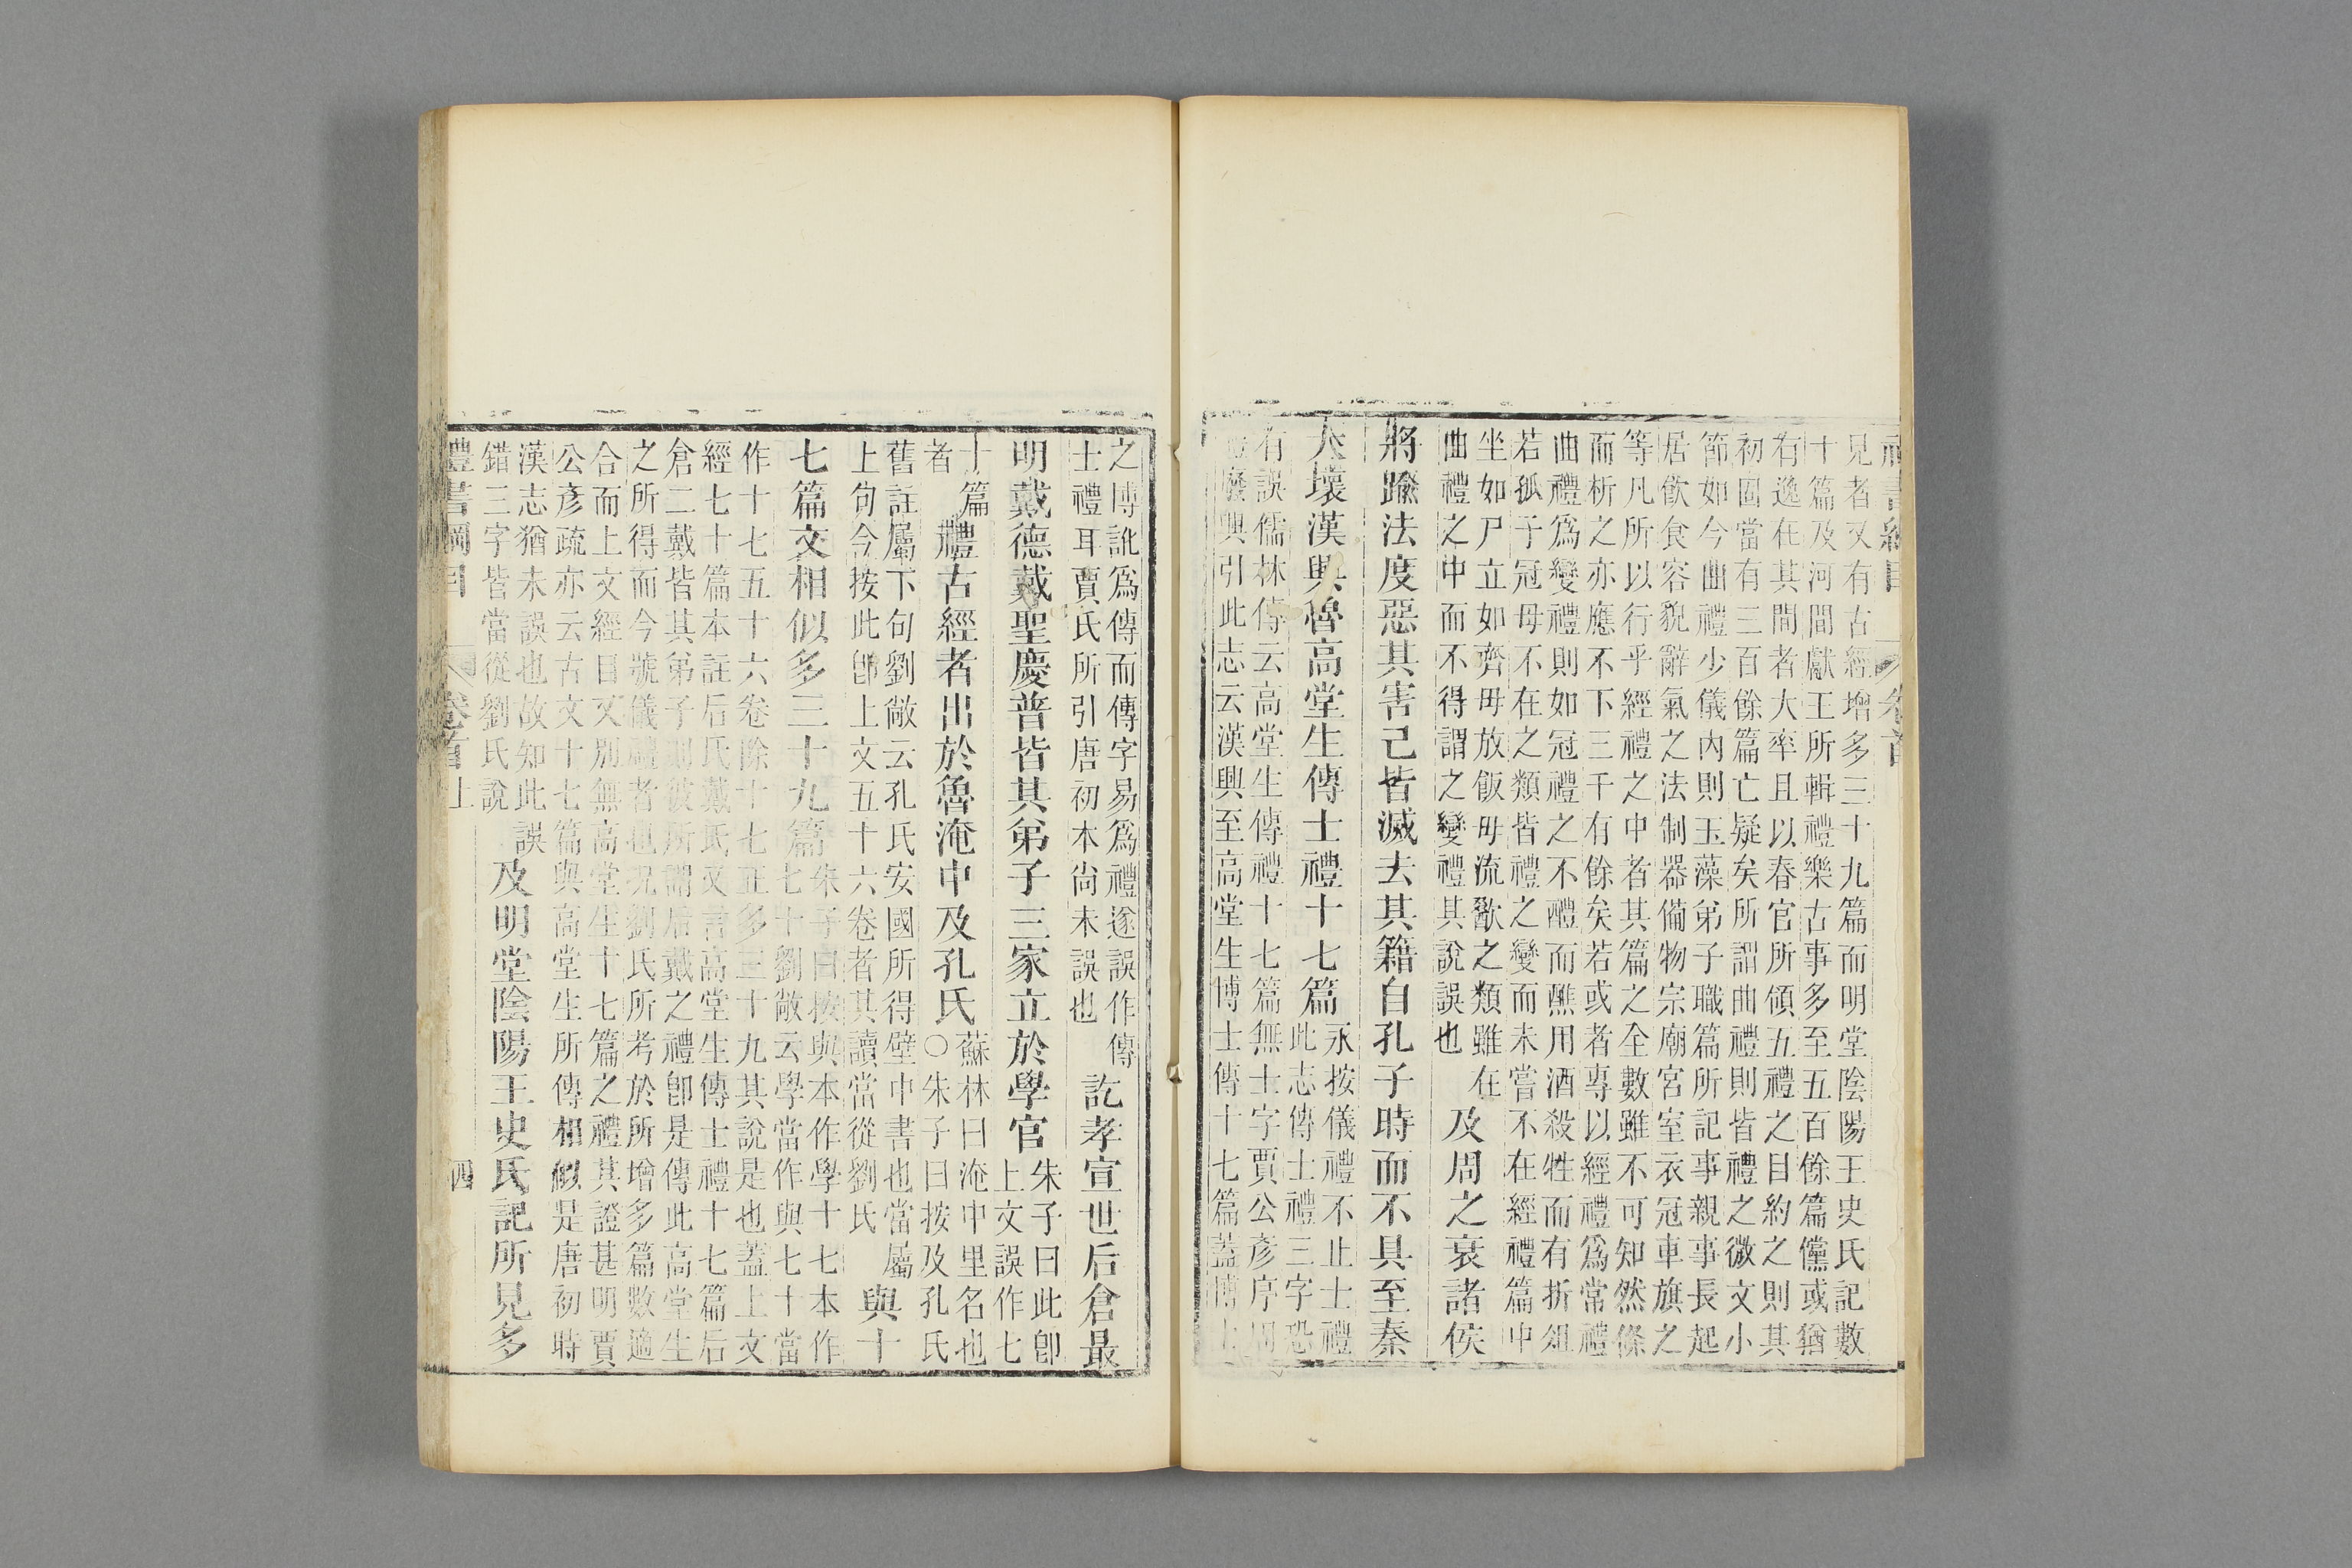 見者又有古經增多三十九篇而明堂陰陽王史氏記數
十篇及河間獻王所輯禮樂古事多至五百餘篇儻或猶
有逸在其間者大率且以春官所領五禮之目約之則其
初固當有三百餘篇亡疑矣所謂曲禮則皆禮之微文小
節如今曲禮少儀內則玉藻弟子職篇所記事親事長起
居飲食容貌辭氣之法制器備物宗廟宮室衣冠車旗之
等凡所以行乎經禮之中者其篇之全數雖不可知然條
而析之亦應不下三千有餘矣若或者專以經禮為常禮
曲禮為變禮則如冠禮之不醴而醮用酒殺牲而有折俎
若孤子冠母不在之類皆禮之變而未嘗不在經禮篇中
坐如尸立如齊毋放飯毋流歠之類雖在
曲禮之中而不得謂之變禮其說誤也
及周之衰諸侯
將踰法度惡其害己皆滅去其籍自孔子時而不具至秦
大壞漢興魯高堂生傳士禮十七篇
永按儀禮不止士禮
此志傳士禮三字恐
有誤儒林傳云高堂生傳禮十七篇無士字賈公彥序周
禮廢興引此志云漢興至高堂生博士傳十七篇蓋博士
之博訛為傳而傳字易為禮遂誤作傳
士禮耳賈氏所引唐初本尚未誤也
訖孝宣世后倉最
明戴德戴聖慶普皆其弟子三家立於學官
朱子曰此即
上文誤作七
十篇
者
禮古經者出於魯淹中及孔氏
蘇林曰淹中里名也
○朱子曰按及孔氏
舊註屬下句劉敞云孔氏安國所得壁中書也當屬
上句今按此即上文五十六卷者其讀當從劉氏
與十
七篇文相似多三十九篇
朱子曰按與本作學十七本作
七十劉敞云學當作與七十當
作十七五十六卷除十七正多三十九其說是也蓋上文
經七十篇本註后氏戴氏又言高堂生傳士禮十七篇后
倉二戴皆其弟子則彼所謂后戴之禮即是傳此高堂生
之所得而今號儀禮者也况劉氏所考於所增多篇數適
合而上文經目又別無高堂生十七篇之禮其證甚明賈
公彥疏亦云古文十七篇與高堂生所傳相似是唐初時
漢志猶未誤也故知此誤
錯三字皆當從劉氏說
及明堂陰陽王史氏記所見多
禮書綱目
卷首上
四